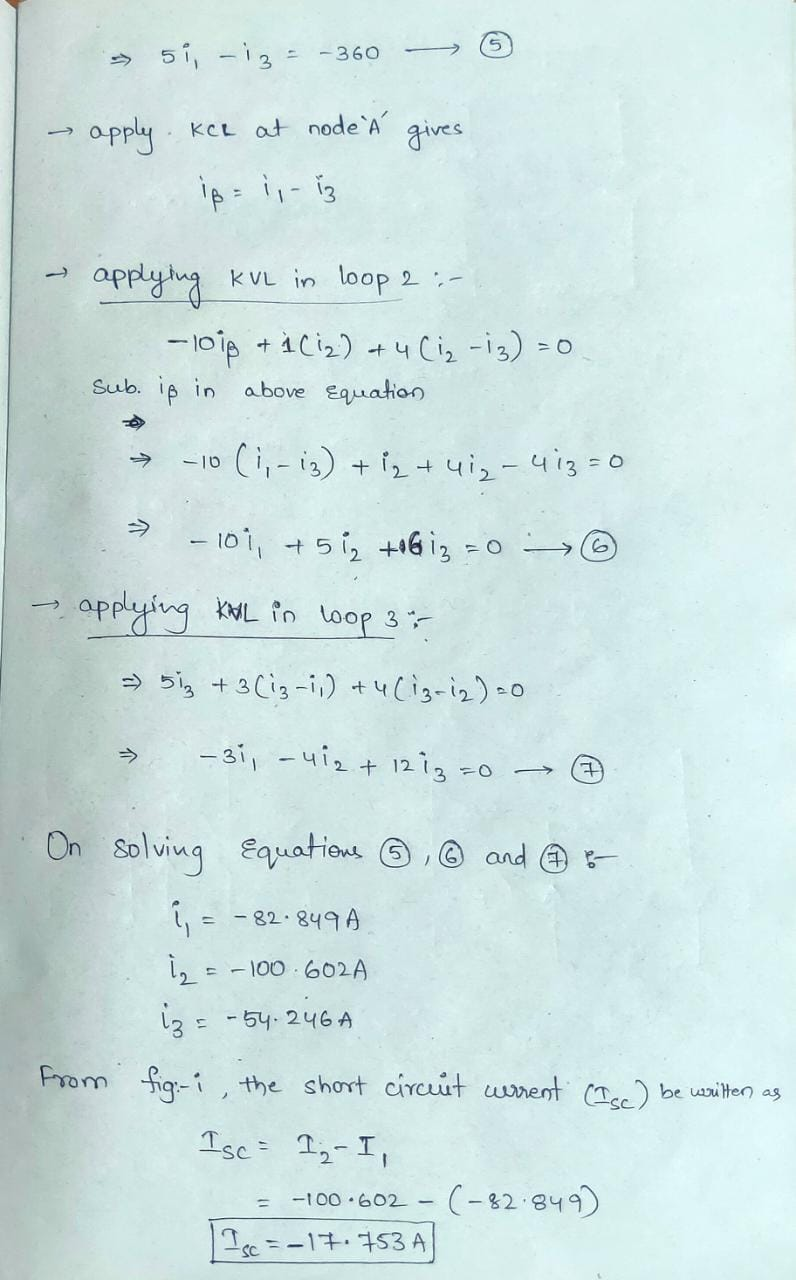 ⇒ 5i₁ - i₃ = -360 ⟶ ⑤
→ apply . KCL at node 'A' gives
iᵦ = i₁ - i₃
→ applying KVL in loop 2 :-
-10iᵦ + 1(i₂) + 4(i₂ - i₃) = 0
Sub. iᵦ in above Equation
⇒
⇒ -10 (i₁ - i₃) + i₂ + 4i₂ - 4i₃ = 0
⇒ -10i₁ + 5i₂ +6i₃ = 0 ⟶ ⑥
→ applying KVL in loop 3 :-
⇒ 5i₃ + 3(i₃ - i₁) + 4(i₃ - i₂) = 0
⇒ -3i₁ - 4i₂ + 12i₃ = 0 ⟶ ⑦
On solving Equations ⑤, ⑥ and ⑦ :-
i₁ = -82.849A
i₂ = -100.602A
i₃ = -54.246A
From fig:-i, the short circuit current (I_SC) be written as
I_SC = I₂ - I₁
= -100.602 - (-82.849)
I_SC = -17.753A